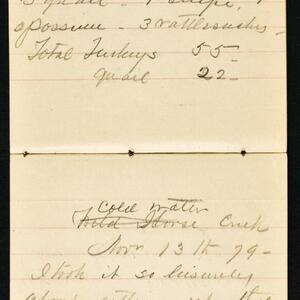 3 quail - 1 snipe, 1
opossum - 3 rattlesnakes -
Total Turkeys 55-
quail 22-
Cold Water
Wild Horse Creek
Nov. 13th 79-
I took it so leisurely